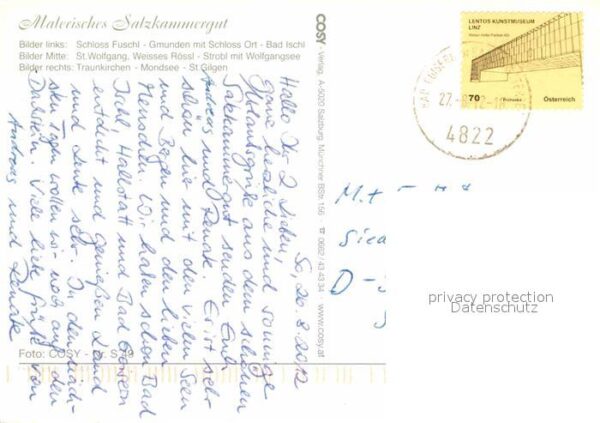 Malerisches Salzkammergut
Bilder links: Schloss Fuschl - Gmunden mit Schloss Ort - Bad Ischl
Bilder Mitte: St.Wolfgang, Weisses Rössl - Strobl mit Wolfgangsee
Bilder rechts: Traunkirchen - Mondsee - St.Gilgen
COSY - Verlag, A-5020 Salzburg, Münchner BStr. 156, ☎ 0662/43 43 34 · www.cosy.at
LENTOS KUNSTMUSEUM
LINZ
70
Österreich
4822
So, 20. 8. 2012
Hallo Ihr 2 Lieben,
ganz herzliche und sonnige
Urlaubsgrüße aus dem schönen
Salzkammergut senden Euch
Andreas und Renate. Es ist sehr
schön hier mit den vielen Seen
und Bergen und den lieben
Menschen. Wir haben schon Bad
Ischl, Hallstatt und Bad Goisern
entdeckt und genießen Land
und Leute sehr. In den näch-
sten Tagen wollen wir noch auf den
Dachstein. Viele liebe Grüße von
Andreas und Renate
D-
privacy protection
Datenschutz
Foto: COSY - Nr. S 49